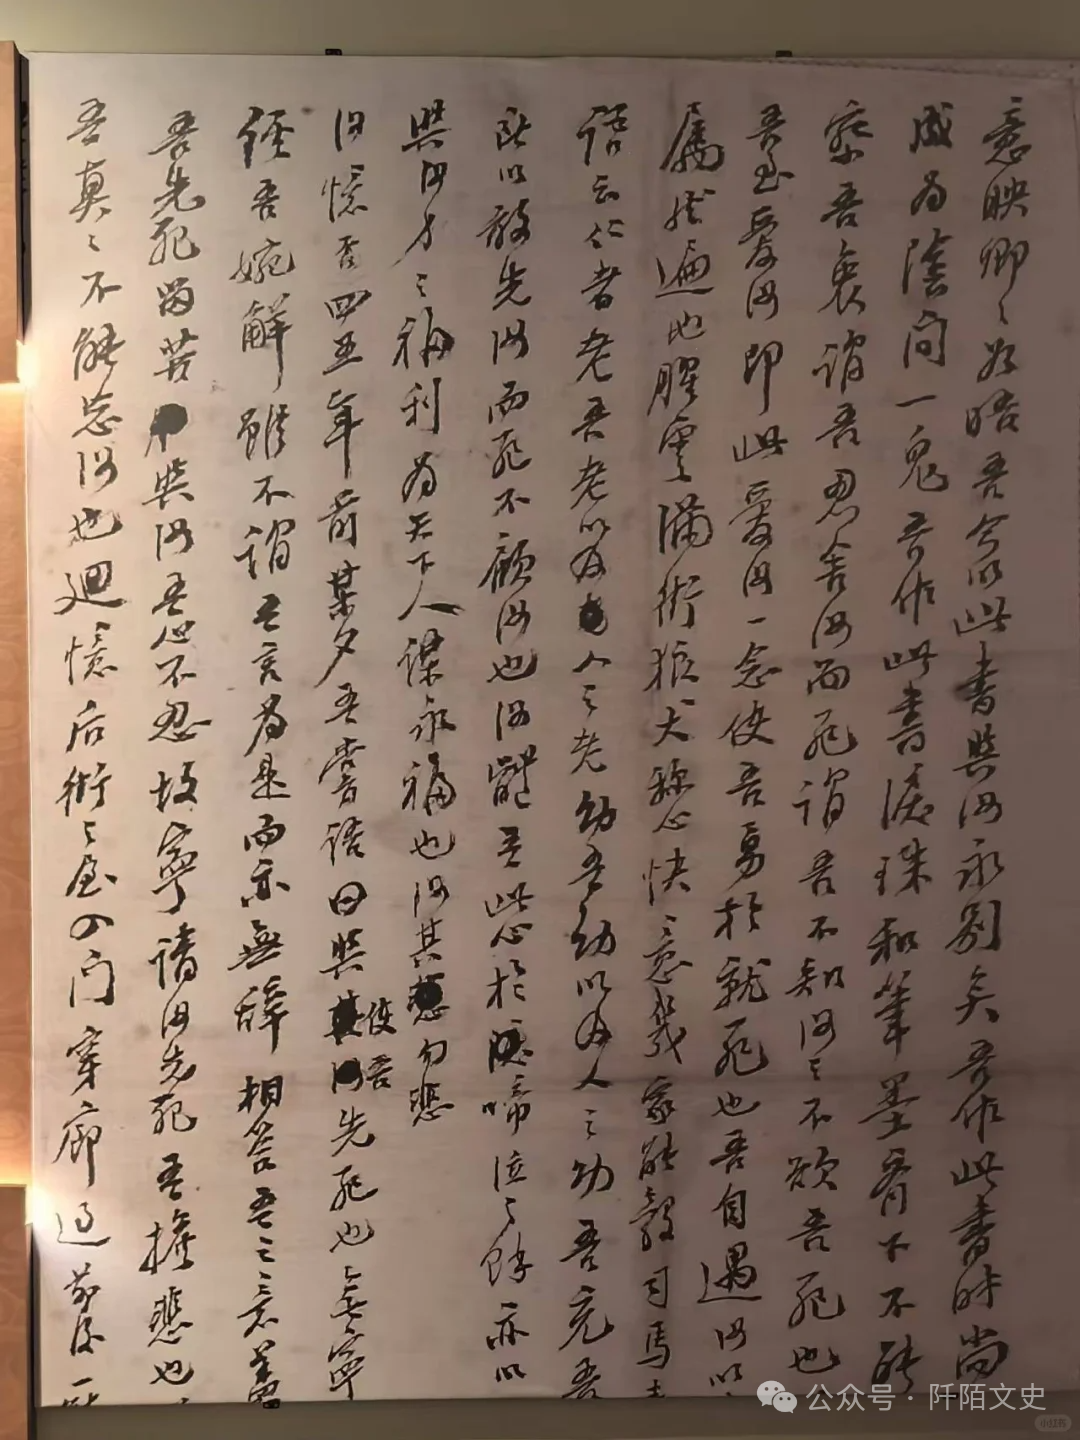 意映卿〻如晤吾今以此書與汝永別矣吾作此書時尚
成為陰間一鬼吾作此書淚珠和筆墨齊下不能
察吾衷謂吾忍舍汝而死謂吾不知汝之不欲吾死也
吾至愛汝即此愛汝一念使吾勇於就死也吾自遇汝以
屬然遍地腥雲滿街狼犬稱心快意幾家能彀司馬
語云仁者老吾老以及人之老幼吾幼以及人之幼吾充吾
所以敢先汝而死不顧汝也汝體吾此心於啼泣之餘亦以
與汝身之福利為天下人謀永福也汝其勿悲
汝憶否四五年前某夕吾嘗語曰與使吾先死也無寧
經吾婉解雖不謂吾言為是而亦無辭相答吾之意蓋
吾先死留苦與汝吾心不忍故寧請汝先死吾擔悲也
吾真〻不能忘汝也迴憶后街之屋入門穿廊過前後
公众号·阡陌文史
小红书